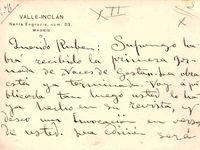 VALLE-INCLÁN
Santa Engracia, núm. 23.
MADRID
XII
Querido Ruben: Supongo ha-
brá recibido la primera Jor-
nada de Voces de Gesta. La obra
está ya terminada. Voy a pu-
blicarla tan luego usted lo ha-
ya hecho en su revista, y
deseo una Invocación en verso
de usted. La edición será